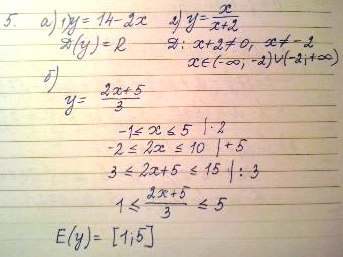 5. а) 1) y = 14 - 2x 2) y = x/(x+2)
D(y) = R D: x+2 ≠ 0, x ≠ -2
x∈(-∞, -2)∪(-2;+∞)
б)
y = (2x+5)/3
-1 ≤ x ≤ 5 |·2
-2 ≤ 2x ≤ 10 |+5
3 ≤ 2x+5 ≤ 15 |:3
1 ≤ (2x+5)/3 ≤ 5
E(y) = [1;5]